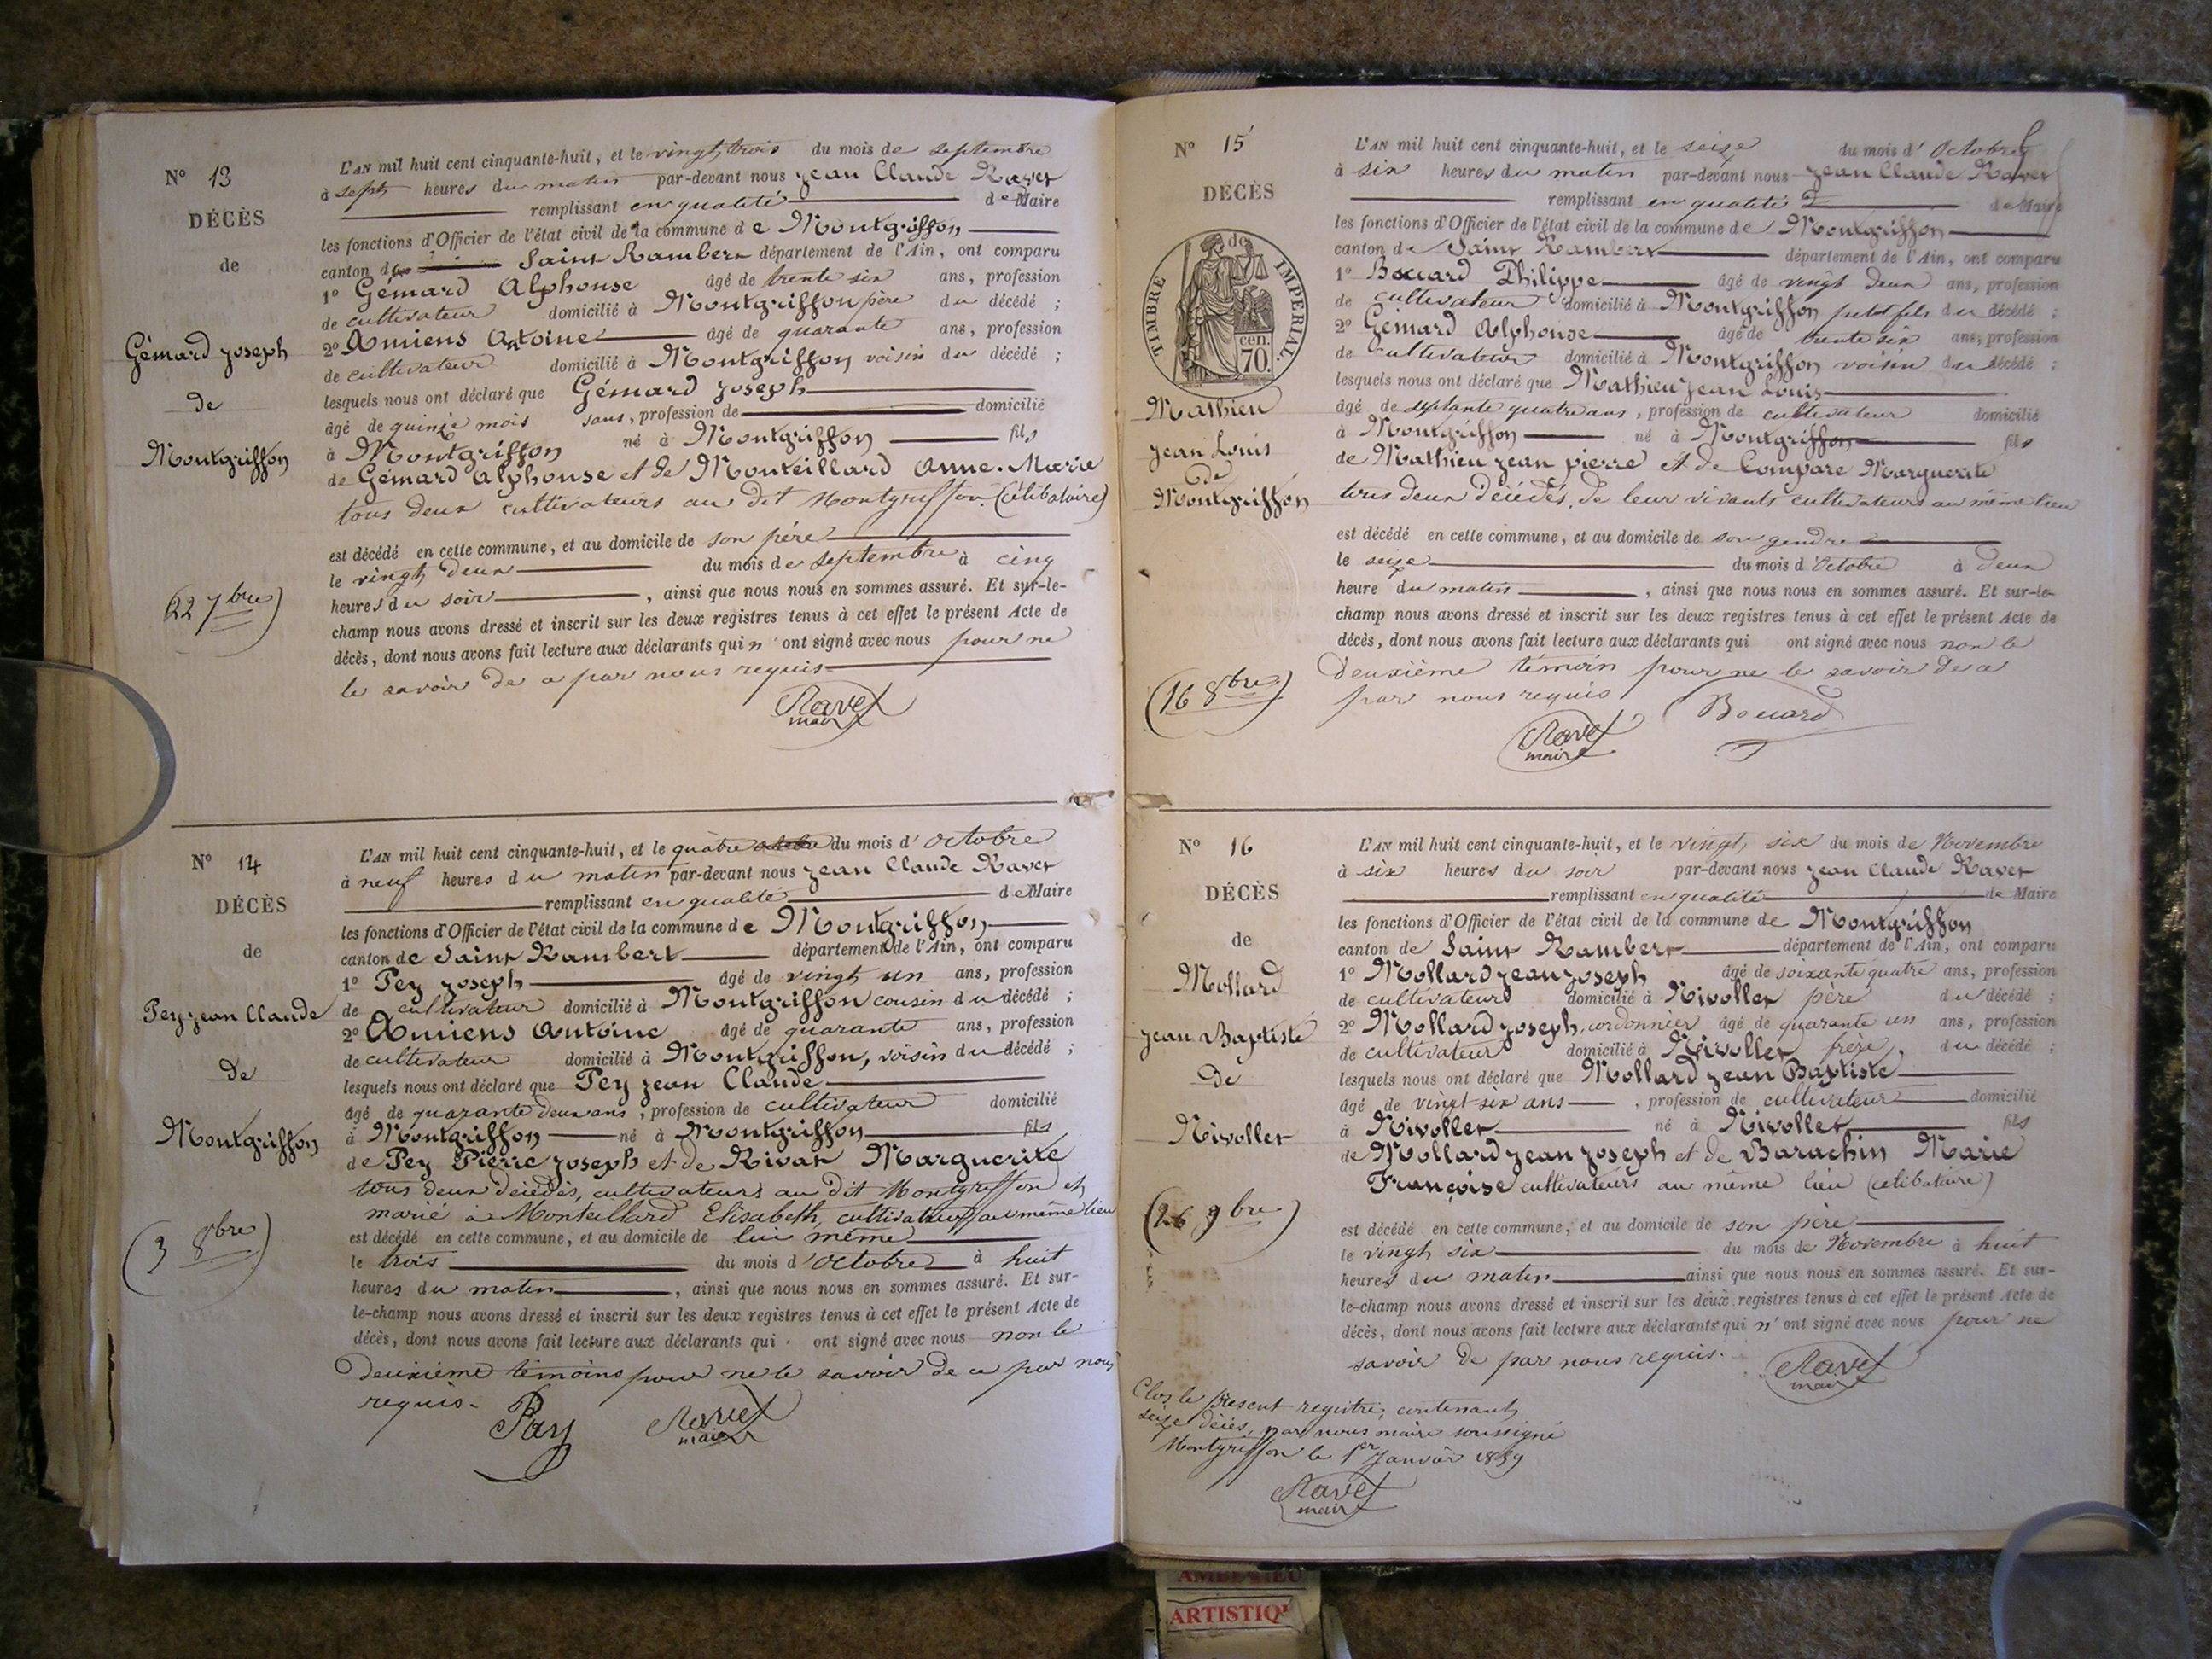 N° 13
DÉCÈS
de
Gémard Joseph
de
Montgriffon
(22 7bre)
L'AN mil huit cent cinquante-huit, et le vingt trois du mois de septembre
à sept heures du matin par-devant nous Jean Claude Ravet
remplissant en qualité de Maire
les fonctions d'Officier de l'état civil de la commune de Montgriffon
canton de Saint Rambert département de l'Ain, ont comparu
1° Gémard Alphonse âgé de trente six ans, profession
de cultivateur domicilié à Montgriffon père du décédé ;
2° Amiens Antoine âgé de quarante ans, profession
de cultivateur domicilié à Montgriffon voisin du décédé ;
lesquels nous ont déclaré que Gémard Joseph
âgé de quinze mois sans, profession de domicilié
à Montgriffon né à Montgriffon fils
de Gémard Alphonse et de Monteillard Anne-Marie
tous deux cultivateurs au dit Montgriffon (célibataire)
est décédé en cette commune, et au domicile de son père
le vingt deux du mois de septembre à cinq
heures du soir, ainsi que nous nous en sommes assuré. Et sur-le-
champ nous avons dressé et inscrit sur les deux registres tenus à cet effet le présent Acte de
décès, dont nous avons fait lecture aux déclarants qui n'ont signé avec nous pour ne
le savoir de a par nous requis
Ravet
maire
N° 14
DÉCÈS
de
Pey Jean Claude
de
Montgriffon
(3 8bre)
L'AN mil huit cent cinquante-huit, et le quatre octobre du mois d'Octobre
à neuf heures du matin par-devant nous Jean Claude Ravet
remplissant en qualité de Maire
les fonctions d'Officier de l'état civil de la commune de Montgriffon
canton de Saint Rambert département de l'Ain, ont comparu
1° Pey Joseph âgé de vingt un ans, profession
de cultivateur domicilié à Montgriffon cousin du décédé ;
2° Amiens Antoine âgé de quarante ans, profession
de cultivateur domicilié à Montgriffon, voisin du décédé ;
lesquels nous ont déclaré que Pey Jean Claude
âgé de quarante deux ans, profession de cultivateur domicilié
à Montgriffon né à Montgriffon fils
de Pey Pierre Joseph et de Rivat Marguerite
tous deux décédés, cultivateurs au dit Montgriffon et
marié à Monteillard Elisabeth, cultivateurs au même lieu
est décédé en cette commune, et au domicile de lui même
le trois du mois d'Octobre à huit
heures du matin, ainsi que nous nous en sommes assuré. Et sur-
le-champ nous avons dressé et inscrit sur les deux registres tenus à cet effet le présent Acte de
décès, dont nous avons fait lecture aux déclarants qui ont signé avec nous non le
deuxième témoins pour ne le savoir de ce par nous
requis.
Pey Ravet
maire
N° 15
DÉCÈS
de
TIMBRE IMPERIAL.
70. cen.
Mathieu
Jean Louis
de
Montgriffon
(16 8bre)
L'AN mil huit cent cinquante-huit, et le seize du mois d'Octobre
à six heures du matin par-devant nous Jean Claude Ravet
remplissant en qualité de Maire
les fonctions d'Officier de l'état civil de la commune de Montgriffon
canton de Saint Rambert département de l'Ain, ont comparu
1° Bouard Philippe âgé de vingt deux ans, profession
de cultivateur domicilié à Montgriffon petit fils du décédé ;
2° Gémard Alphonse âgé de trente six ans, profession
de cultivateur domicilié à Montgriffon voisin du décédé ;
lesquels nous ont déclaré que Mathieu Jean Louis
âgé de septante quatre ans, profession de cultivateur domicilié
à Montgriffon né à Montgriffon fils
de Mathieu Jean pierre et de Compare Marguerite
tous deux décédés, de leur vivants cultivateurs au même lieu
est décédé en cette commune, et au domicile de son gendre
le seize du mois d'Octobre à deux
heure du matin, ainsi que nous nous en sommes assuré. Et sur-le-
champ nous avons dressé et inscrit sur les deux registres tenus à cet effet le présent Acte de
décès, dont nous avons fait lecture aux déclarants qui ont signé avec nous non le
deuxième témoin pour ne le savoir de a
par nous requis
Ravet Bouard
maire
N° 16
DÉCÈS
de
Mollard
Jean Baptiste
de
Nivollet
(26 9bre)
L'AN mil huit cent cinquante-huit, et le vingt six du mois de Novembre
à six heures du soir par-devant nous Jean Claude Ravet
remplissant en qualité de Maire
les fonctions d'Officier de l'état civil de la commune de Montgriffon
canton de Saint Rambert département de l'Ain, ont comparu
1° Mollard Jean Joseph âgé de soixante quatre ans, profession
de cultivateur domicilié à Nivollet père du décédé ;
2° Mollard Joseph, cordonnier âgé de quarante un ans, profession
de cultivateur domicilié à Nivollet frère, du décédé ;
lesquels nous ont déclaré que Mollard Jean Baptiste
âgé de vingt six ans, profession de cultivateur domicilié
à Nivollet né à Nivollet fils
de Mollard Jean Joseph et de Barachin Marie
Françoise cultivateurs au même lieu (célibataire)
est décédé en cette commune, et au domicile de son père
le vingt six du mois de Novembre à huit
heures du matin ainsi que nous nous en sommes assuré. Et sur-
le-champ nous avons dressé et inscrit sur les deux registres tenus à cet effet le présent Acte de
décès, dont nous avons fait lecture aux déclarants qui n'ont signé avec nous pour ne
savoir de par nous requis.
Ravet
maire
Clos le présent registre, contenant
seize décès, par nous maire soussigné
Montgriffon le 1er Janvier 1859
Ravet
maire
ARTISTIQ